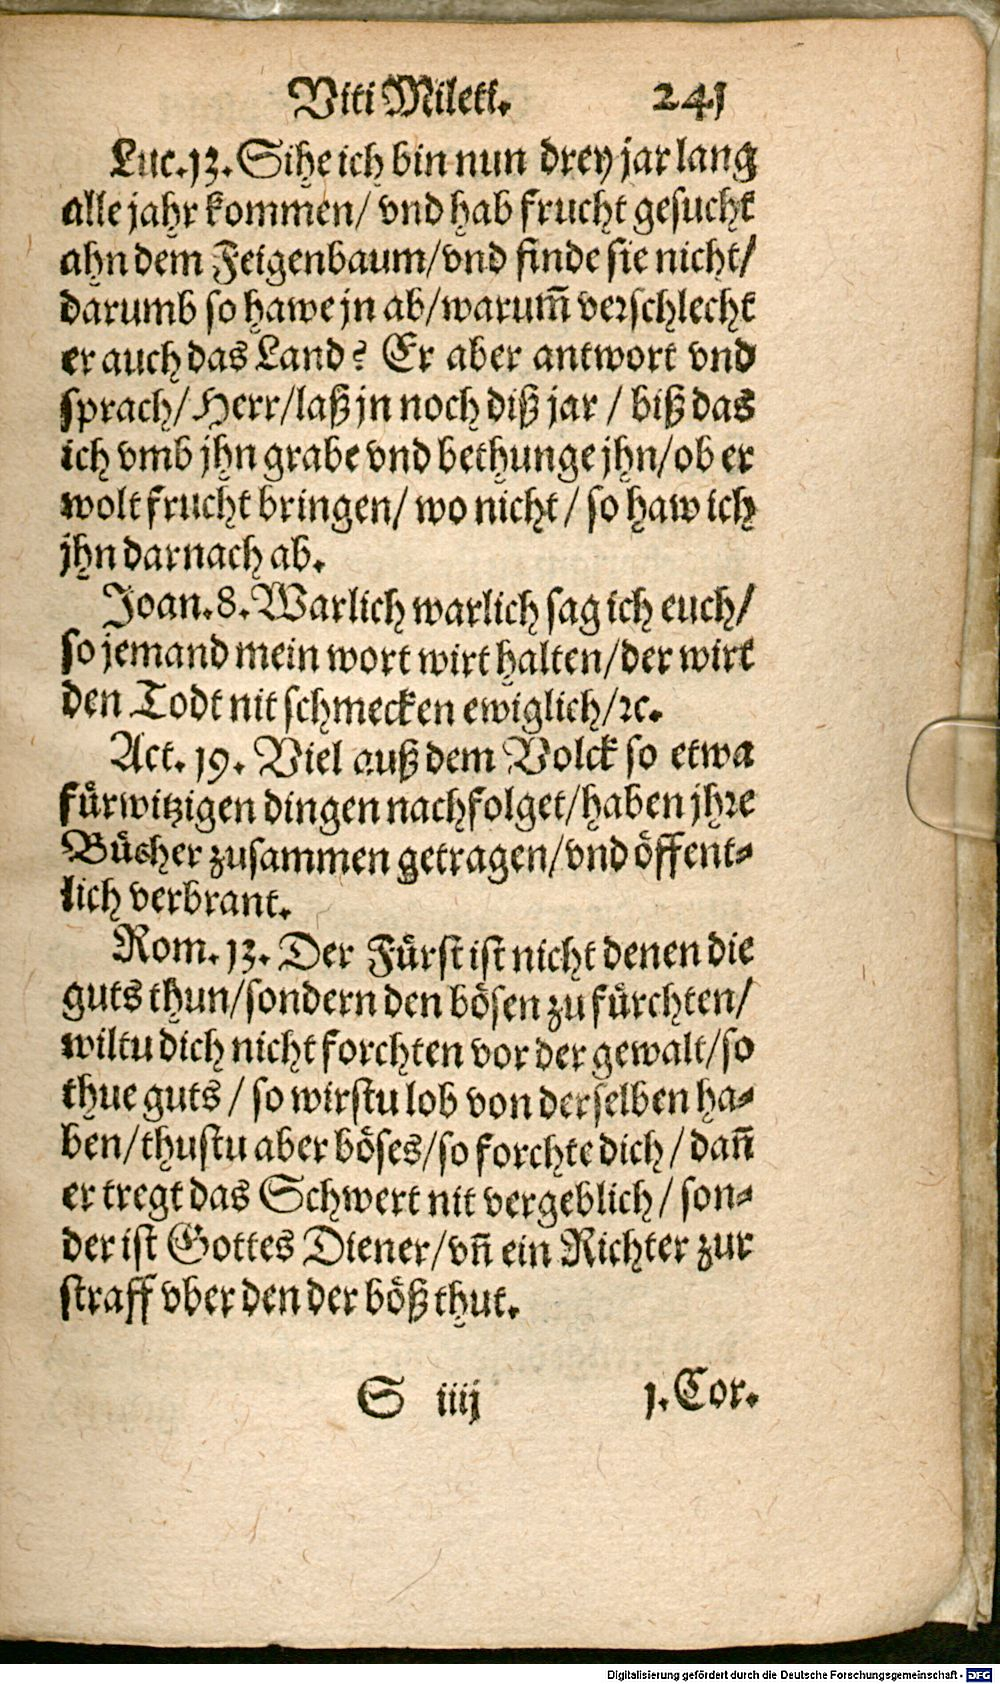 Viti Mileti. 241
Luc. 13. Sihe ich bin nun drey jar lang
alle jahr kommen/ vnd hab frucht gesucht
ahn dem Feigenbaum/vnd finde sie nicht/
darumb so hawe jn ab/warum̃ verschlecht
er auch das Land? Er aber antwort vnd
sprach/ Herr/laß jn noch diß jar / biß das
ich vmb jhn grabe vnd bethunge jhn/ob er
wolt frucht bringen/ wo nicht / so haw ich
jhn darnach ab.
Joan. 8. Warlich warlich sag ich euch/
so jemand mein wort wirt halten/der wirt
den Todt nit schmecken ewiglich/ꝛc.
Act. 19. Viel auß dem Volck so etwa
fürwitzigen dingen nachfolget/haben jhre
Bücher zusammen getragen/vnd öffent-
lich verbrant.
Rom. 13. Der Fürst ist nicht denen die
guts thun/sondern den bösen zu fürchten/
wiltu dich nicht forchten vor der gewalt/so
thue guts / so wirstu lob von derselben ha-
ben/thustu aber böses/so forchte dich / dan̄
er tregt das Schwert nit vergeblich / son-
der ist Gottes Diener/vn̄ ein Richter zur
straff vber den der böß thut.
S iiij 1. Cor.
Digitalisierung gefördert durch die Deutsche Forschungsgemeinschaft - DFG